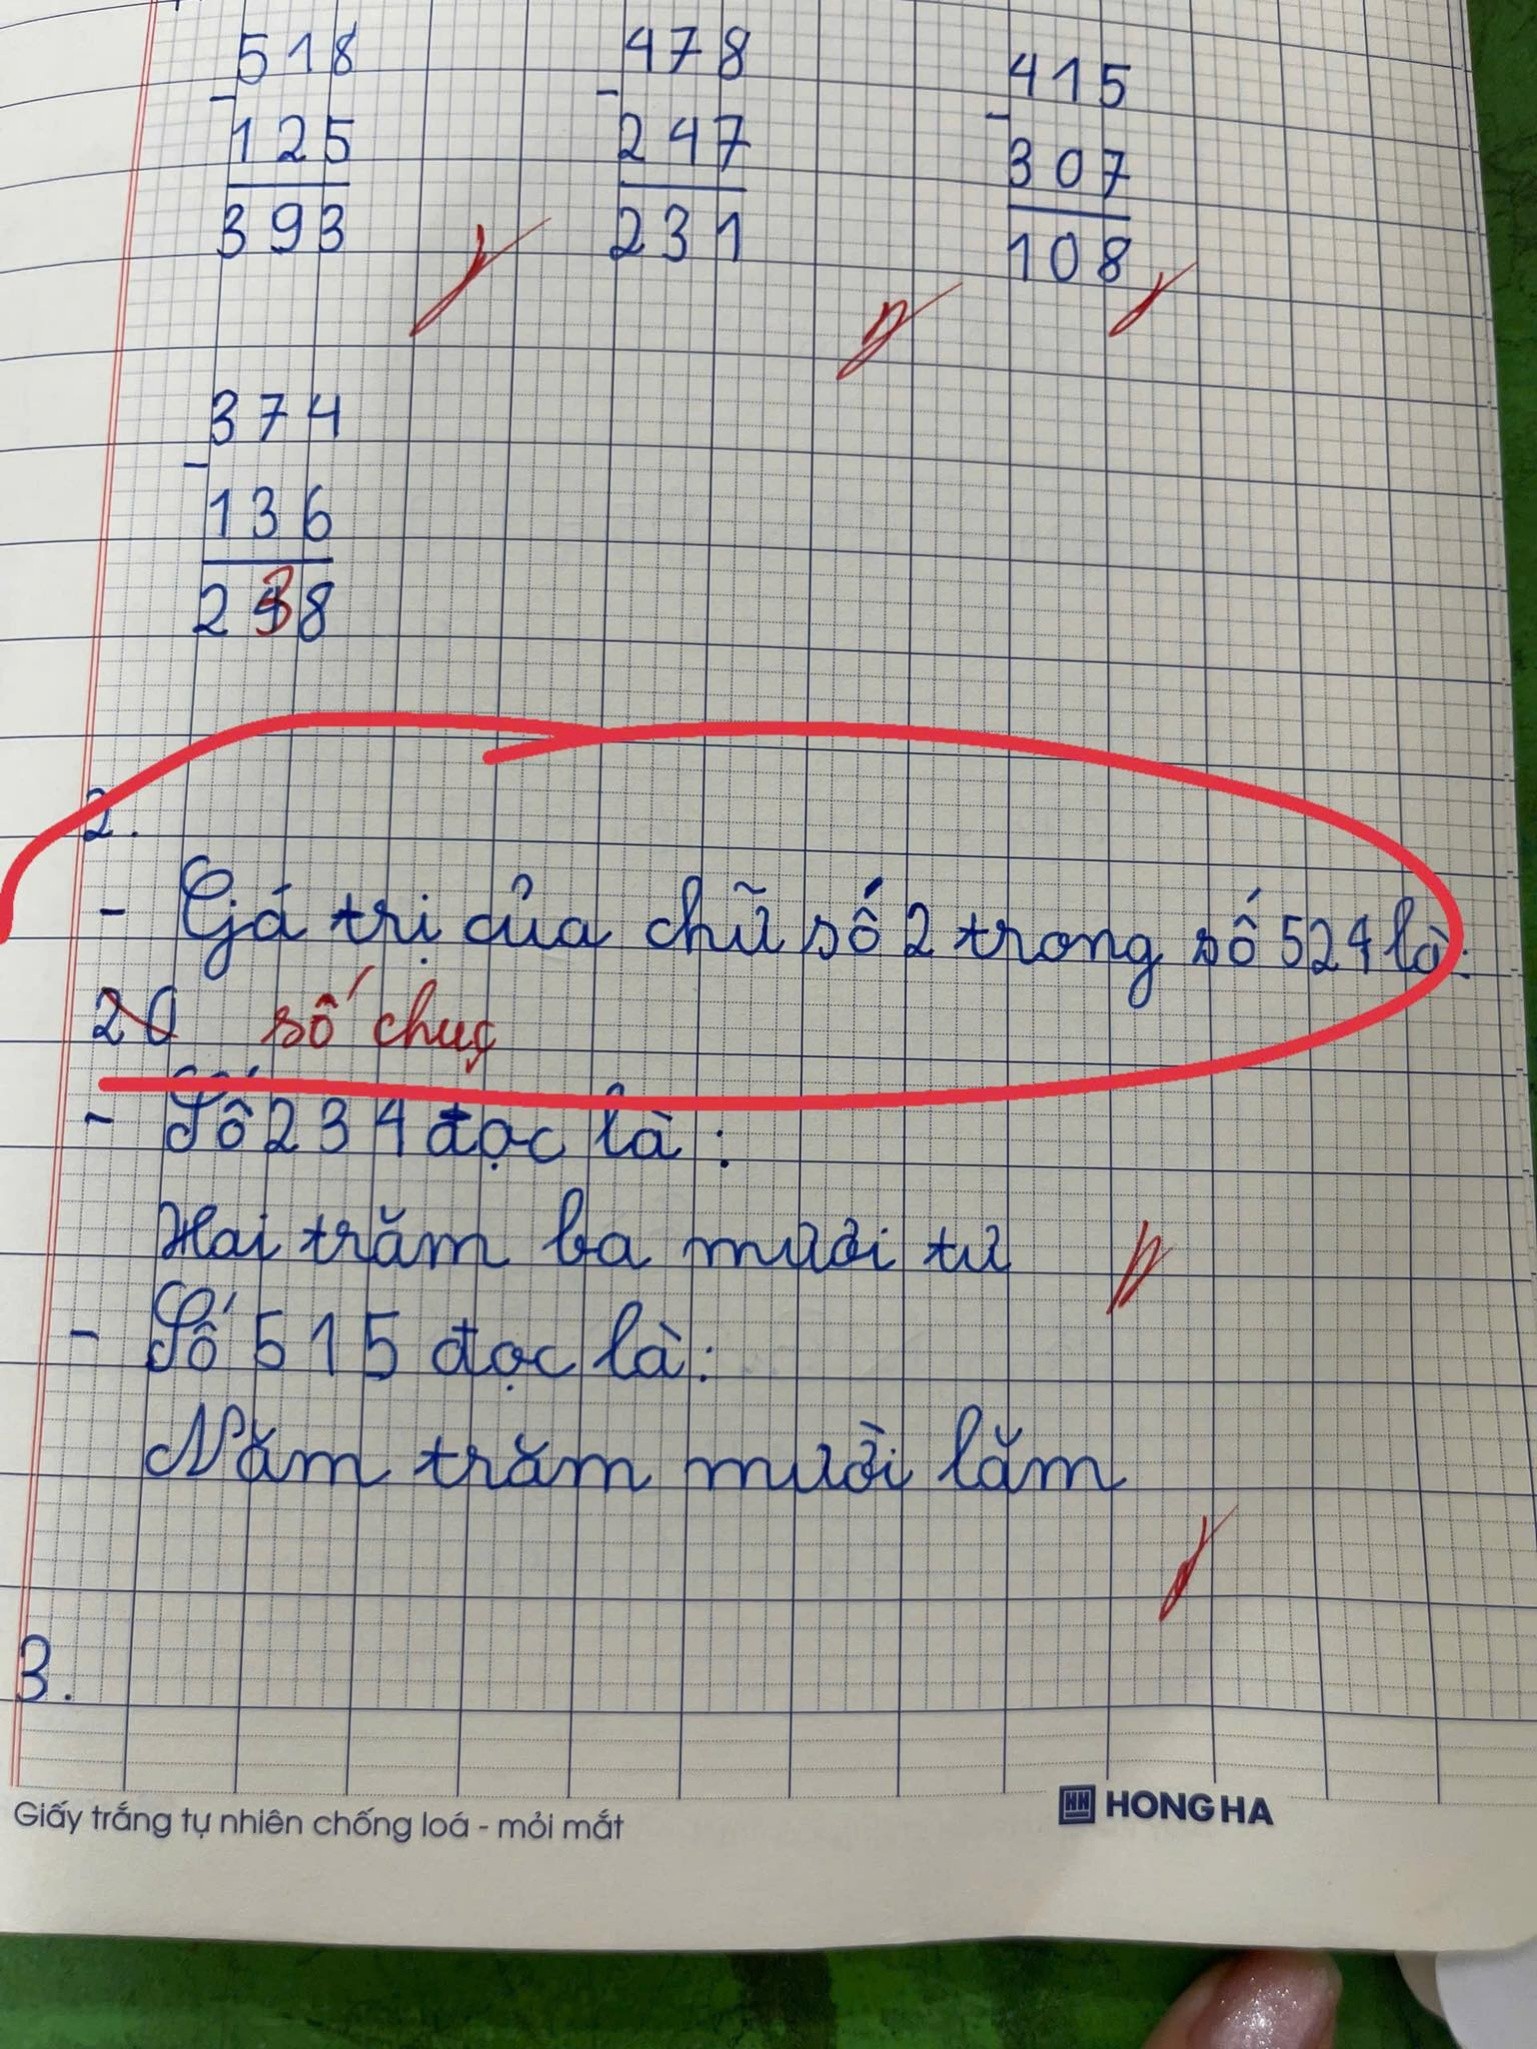 518 478 415
- - -
125 247 307
393 231 108
374
-
136
238
2.
- Giá trị của chữ số 2 trong số 524 là:
20 số chục
- Số 234 đọc là:
Hai trăm ba mươi tư
- Số 515 đọc là:
Năm trăm mười lăm
3.
Giấy trắng tự nhiên chống loá - mỏi mắt HH HONG HA